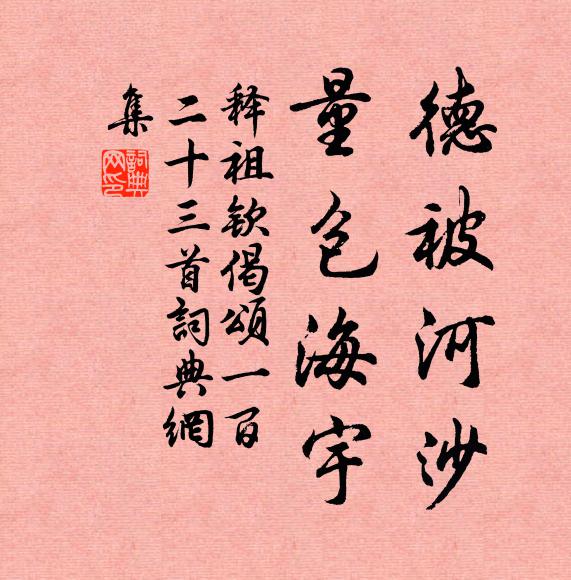 德被河沙
量包海宇
释祖钦偈頌一百
二十三首詞典網
集
詞典
网印